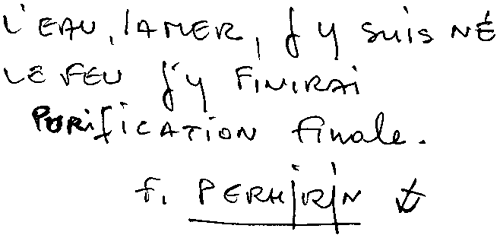 L'EAU, LA MER, J'Y SUIS NÉ
LE FEU J'Y FINIRAI
PURIFICATION finale.
F. PERHIRIN